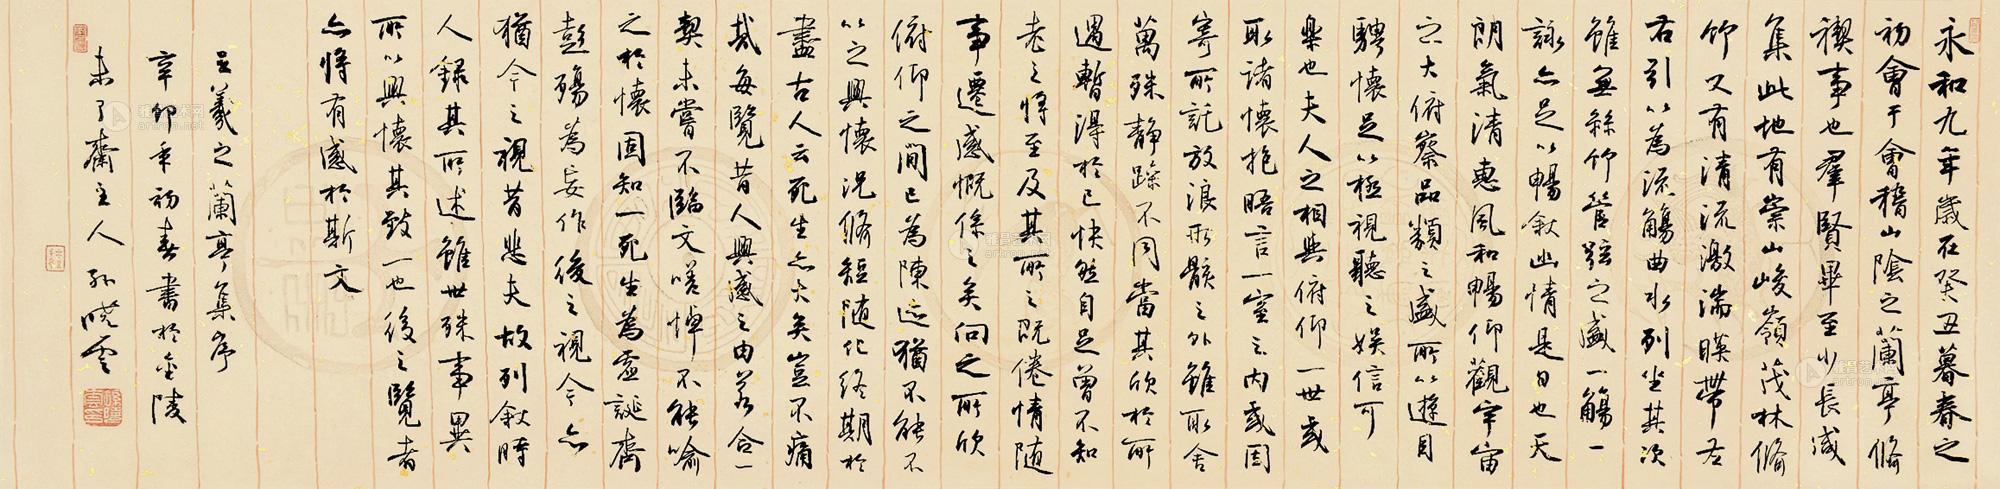 永和九年歲在癸丑暮春之
初會于會稽山陰之蘭亭脩
禊事也羣賢畢至少長咸
集此地有崇山峻嶺茂林脩
竹又有清流激湍暎帶左
右引以為流觴曲水列坐其次
雖無絲竹管弦之盛一觴一
詠亦足以暢敘幽情是日也天
朗氣清惠風和暢仰觀宇宙
之大俯察品類之盛所以遊目
騁懷足以極視聽之娛信可
樂也夫人之相與俯仰一世或
取諸懷抱晤言一室之內或因
寄所託放浪形骸之外雖取舍
萬殊靜躁不同當其欣於所
遇暫得於己快然自足曾不知
老之將至及其所之既倦情隨
事遷感慨係之矣向之所欣
俯仰之間已為陳迹猶不能不
以之興懷況脩短隨化終期於
盡古人云死生亦大矣豈不痛
哉每覽昔人興感之由若合一
契未嘗不臨文嗟悼不能喻
之於懷固知一死生為虛誕齊
彭殤為妄作後之視今亦
猶今之視昔悲夫故列敘時
人錄其所述雖世殊事異
所以興懷其致一也後之覽者
亦將有感於斯文
王羲之蘭亭集序
辛卯年初春書於金陵
未了齋主人孫曉雲
雅昌艺术网
artron.net